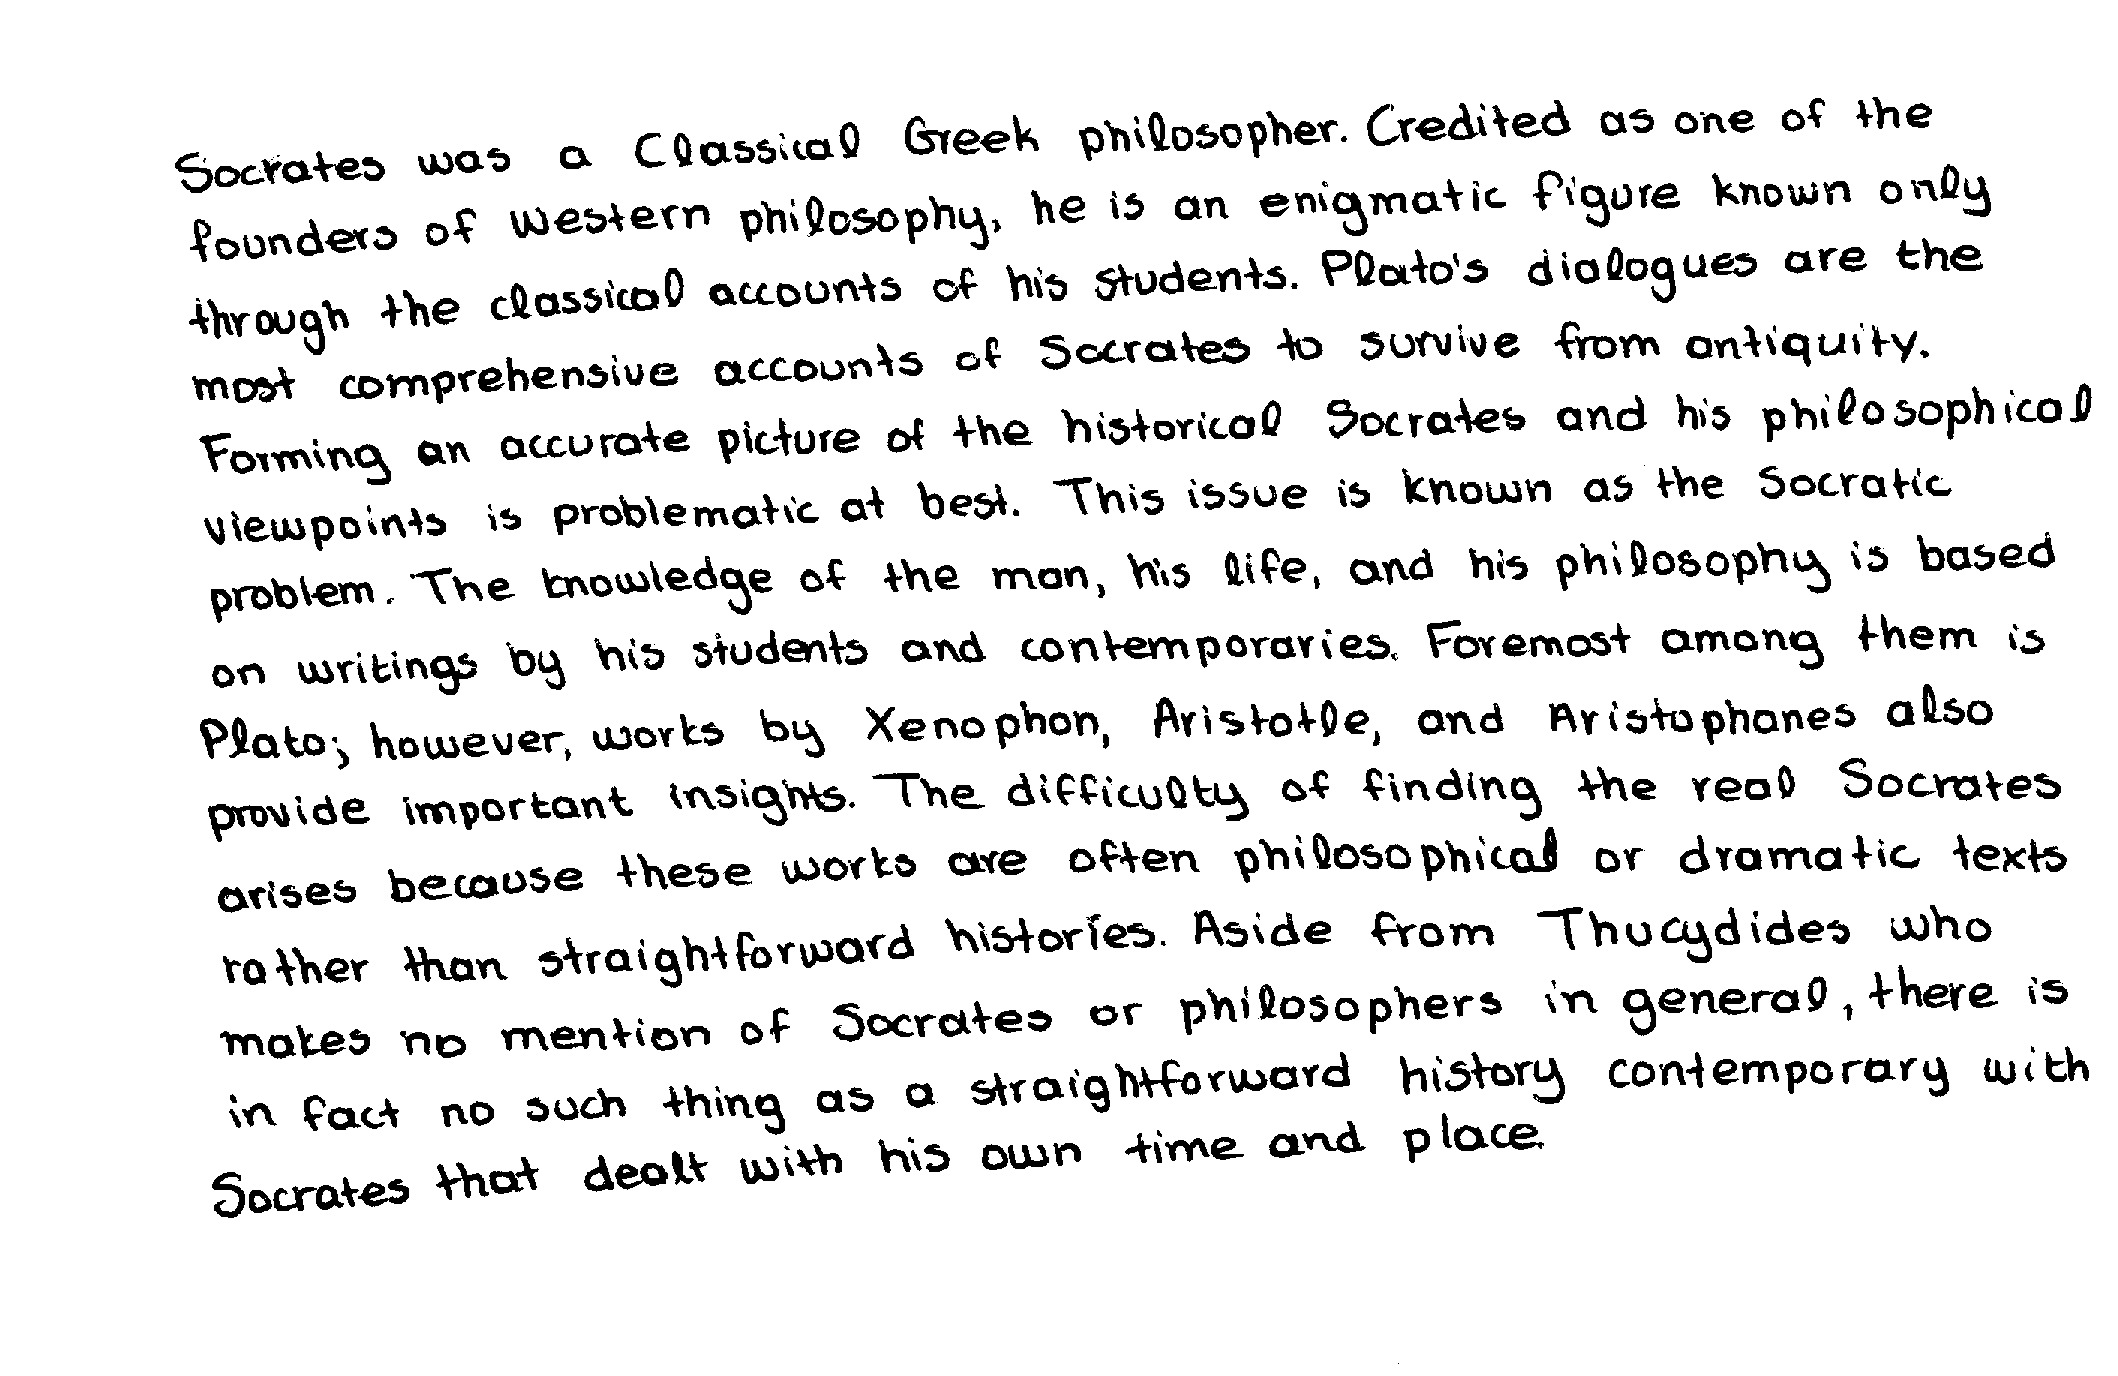 Socrates was a Classical Greek philosopher. Credited as one of the
founders of Western philosophy, he is an enigmatic figure known only
through the classical accounts of his students. Plato's dialogues are the
most comprehensive accounts of Socrates to survive from antiquity.
Forming an accurate picture of the historical Socrates and his philosophical
viewpoints is problematic at best. This issue is known as the Socratic
problem. The knowledge of the man, his life, and his philosophy is based
on writings by his students and contemporaries. Foremost among them is
Plato; however, works by Xenophon, Aristotle, and Aristophanes also
provide important insights. The difficulty of finding the real Socrates
arises because these works are often philosophical or dramatic texts
rather than straightforward histories. Aside from Thucydides who
makes no mention of Socrates or philosophers in general, there is
in fact no such thing as a straightforward history contemporary with
Socrates that dealt with his own time and place.